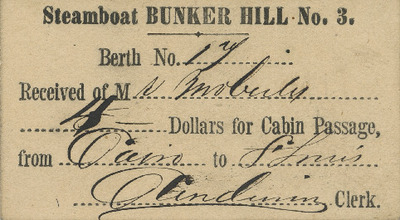 Steamboat BUNKER HILL No. 3.
Berth No. 17
Received of Mr Moberly
4 Dollars for Cabin Passage,
from Cairo to St Louis
Clerk.